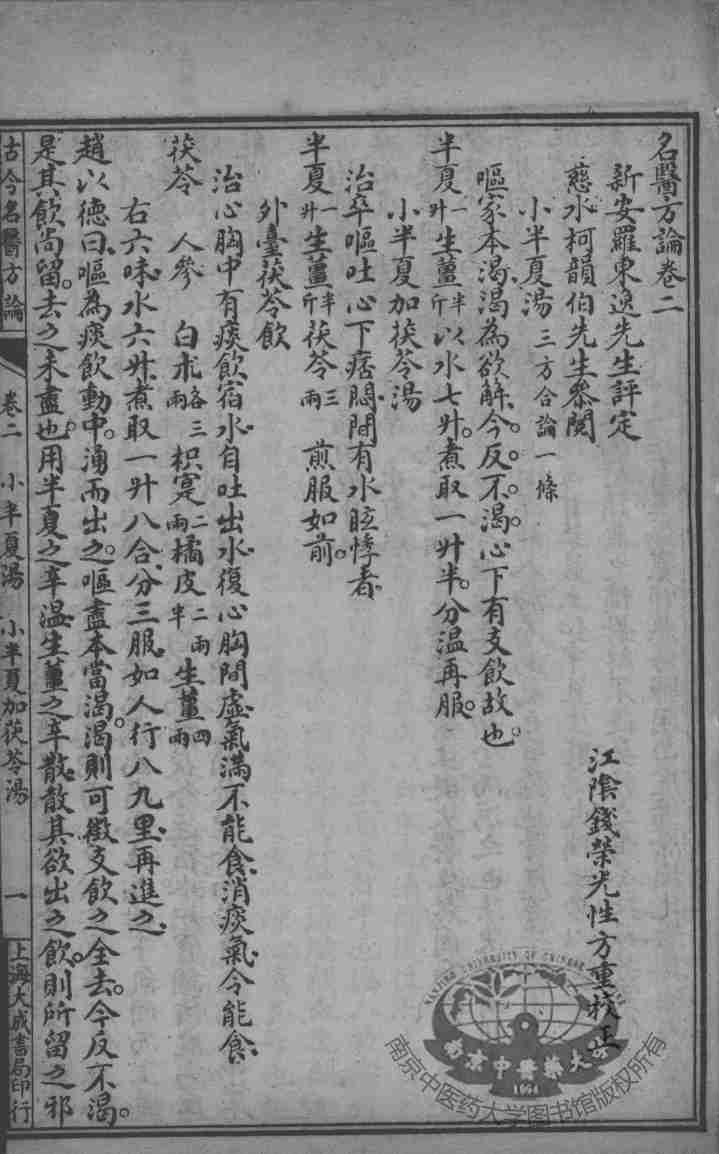 名醫方論卷二
新安羅東逸先生評定
慈水柯韻伯先生參閱
江陰錢榮光性方重校正
小半夏湯 三方合論一條
嘔家本渴。渴為欲解。今反不渴。心下有支飲故也。
半夏一升 生薑半斤 以水七升。煮取一升半。分溫再服。
小半夏加茯苓湯
治卒嘔吐心下痞悶。間有水眩悸者。
半夏一升 生薑半斤 茯苓三兩 煎服如前。
外臺茯苓飲
治心胸中有痰飲宿水。自吐出水。復心胸間虛。氣滿不能食。消痰氣。令能食。
茯苓 人參 白朮各三兩 枳實二兩 橘皮二兩半 生薑四兩
右六味。水六升。煮取一升八合。分三服。如人行八九里。再進之。
趙以德曰。嘔為痰飲動中。湧而出之。嘔盡本當渴。渴則可徵支飲之全去。今反不渴。
是其飲尚留。去之未盡也。用半夏之辛溫。生薑之辛散。散其欲出之飲。則所留之邪
古今名醫方論 卷二 小半夏湯 小半夏加茯苓湯 一 上海大成書局印行
NANJING UNIVERSITY OF CHINESE
南京中醫藥大學
1954
南京中医药大学图书馆版权所有